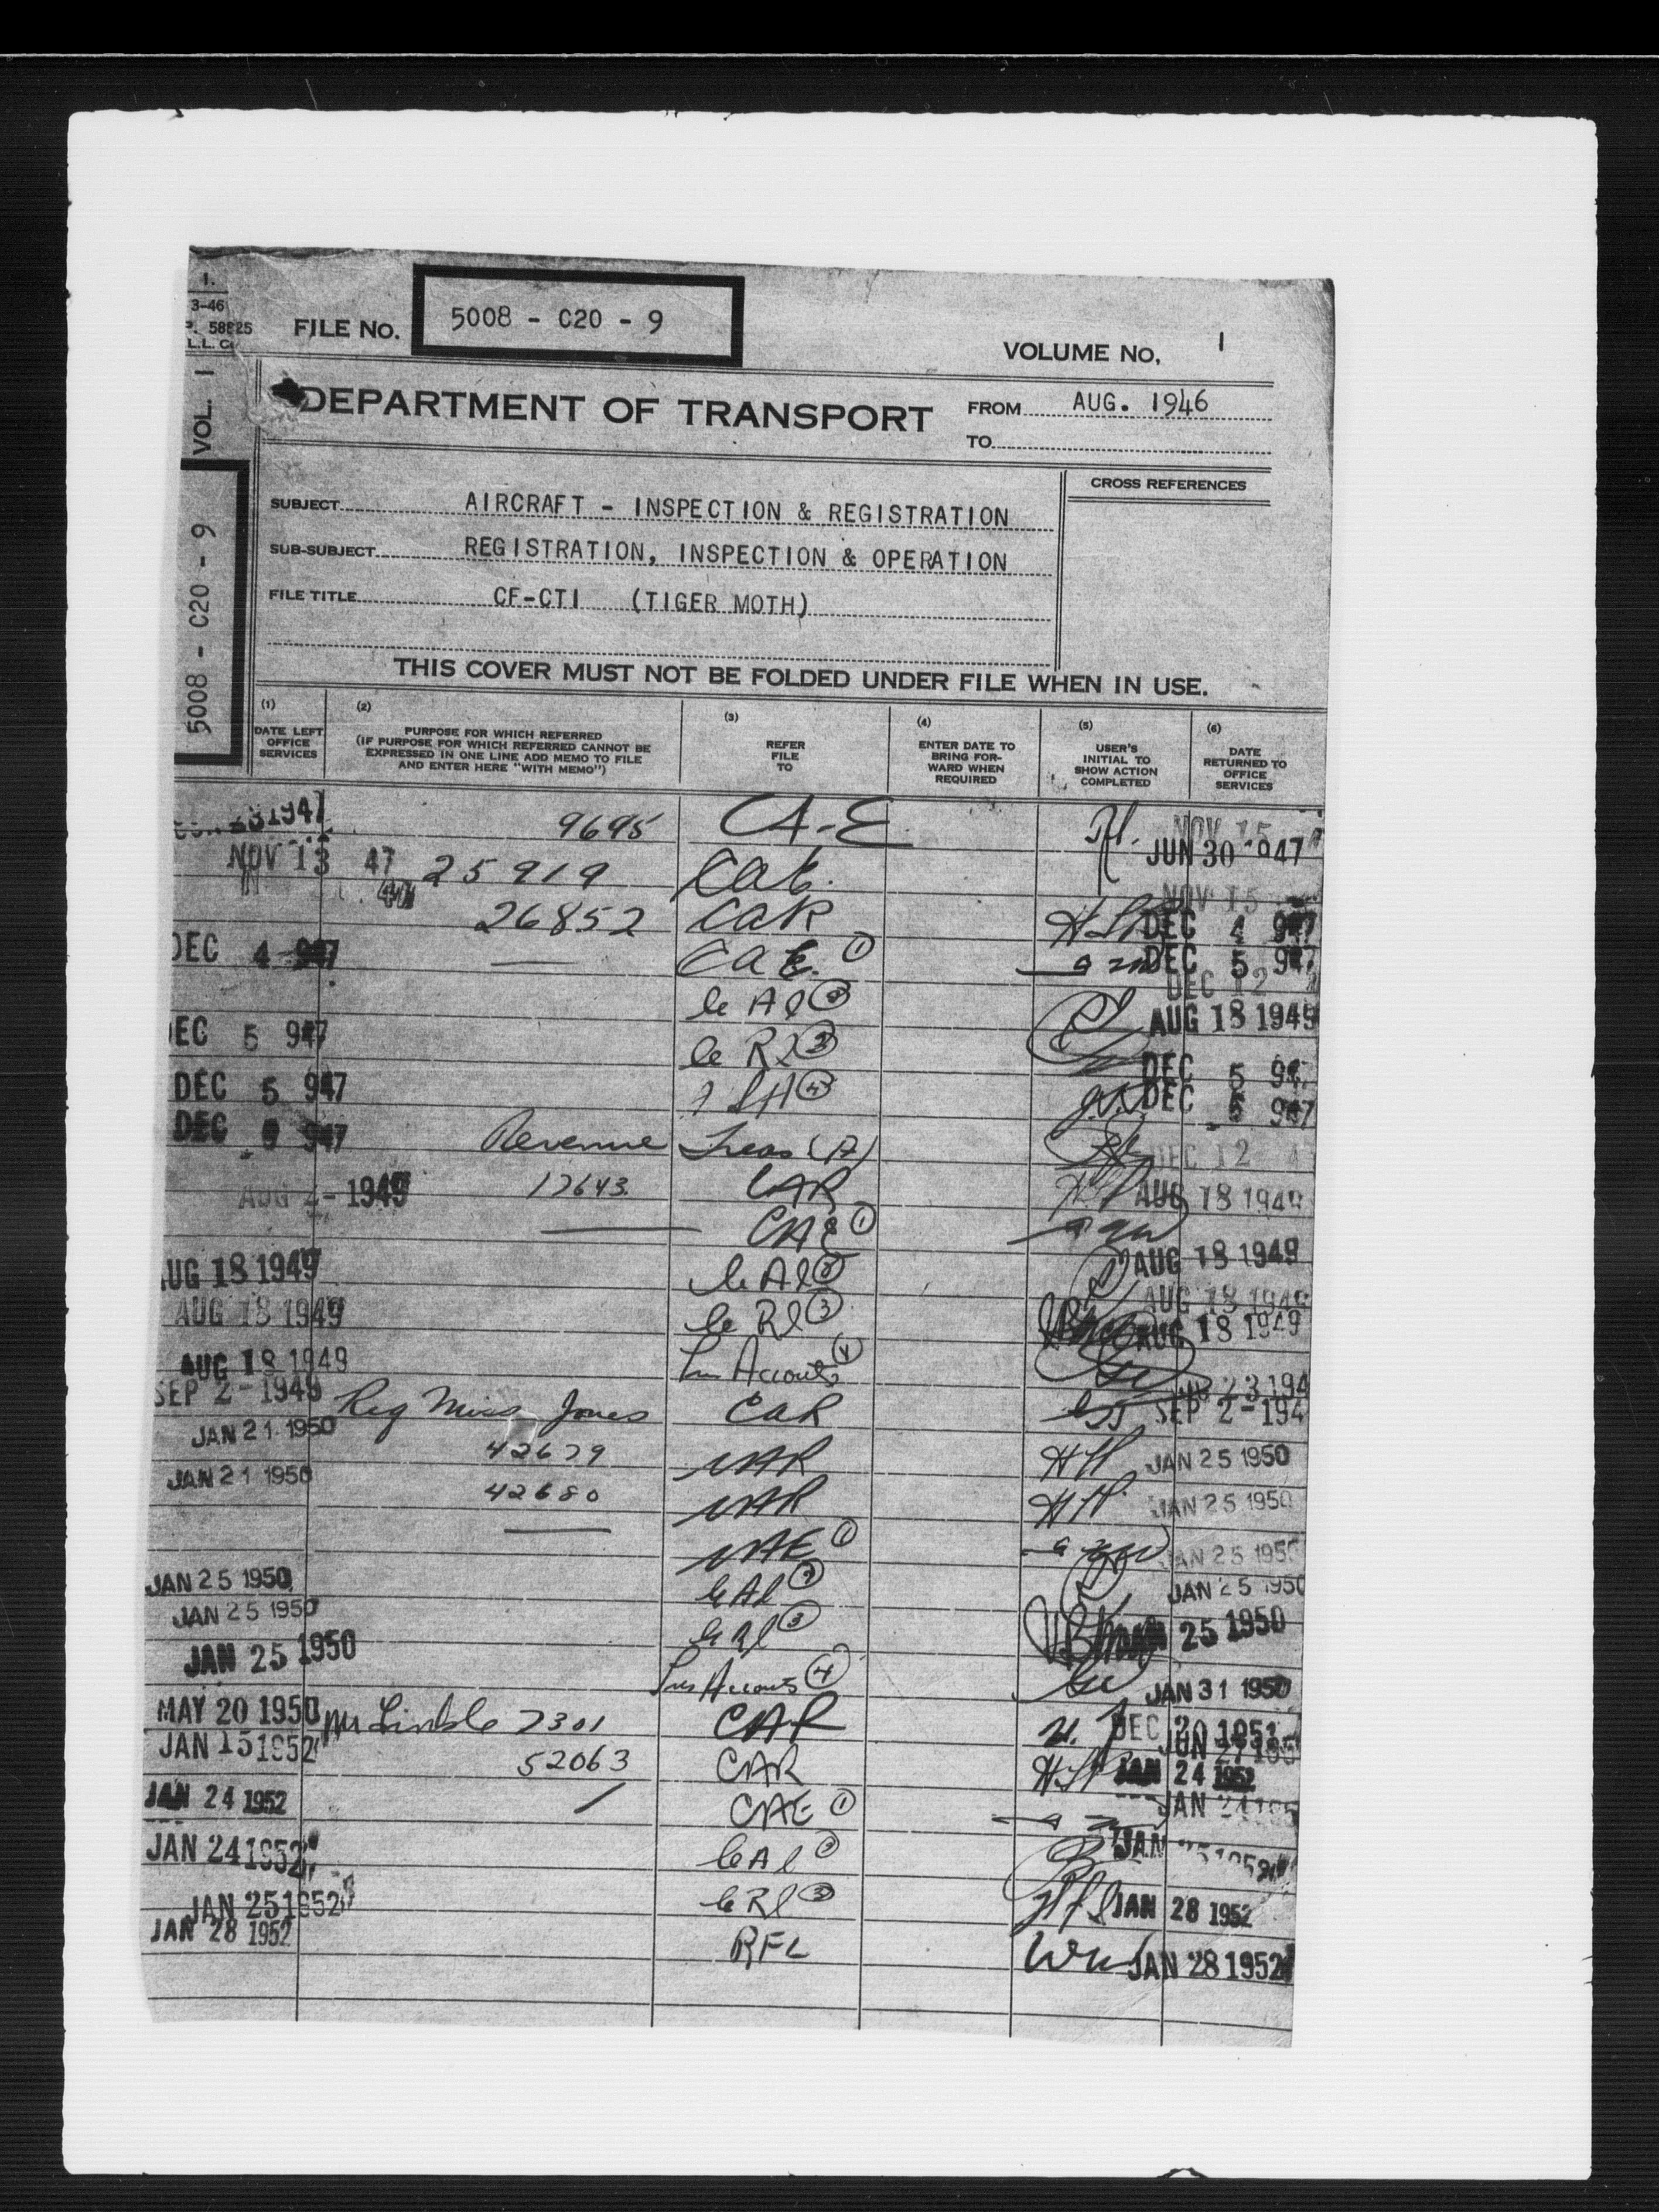 1.
3-46
P. 58825
L.L. Co
FILE NO. 5008 - C20 - 9
VOLUME NO. 1
VOL. 1
5008 - C20 - 9
DEPARTMENT OF TRANSPORT
FROM AUG. 1946
TO
SUBJECT AIRCRAFT - INSPECTION & REGISTRATION
SUB-SUBJECT REGISTRATION, INSPECTION & OPERATION
FILE TITLE CF-CTI (TIGER MOTH)
CROSS REFERENCES
THIS COVER MUST NOT BE FOLDED UNDER FILE WHEN IN USE.
(1) DATE LEFT OFFICE SERVICES
(2) PURPOSE FOR WHICH REFERRED (IF PURPOSE FOR WHICH REFERRED CANNOT BE EXPRESSED IN ONE LINE ADD MEMO TO FILE AND ENTER HERE "WITH MEMO")
(3) REFER FILE TO
(4) ENTER DATE TO BRING FORWARD WHEN REQUIRED
(5) USER'S INITIAL TO SHOW ACTION COMPLETED
(6) DATE RETURNED TO OFFICE SERVICES
1947 9695 CA-E NOV 15
JUN 30 1947
NOV 13 47 25919 CAE NOV 15
26852 CAR DEC 4 947
DEC 4 947 CAE 1 DEC 5 947
DEC 12
AUG 18 1949
DEC 5 947 3 DEC 5 947
DEC 5 947 4 DEC 5 947
DEC 9 947 Revenue Treas (A) DEC 12 4
AUG 2 - 1949 17643 CAR AUG 18 1949
CAE 1
AUG 18 1949 AUG 18 1949
AUG 18 1949 3 AUG 18 1949
AUG 18 1949
AUG 18 1949 Accounts 4 23 194
SEP 2 - 1949 Reg Miss Jones CAR SEP 2 - 194
JAN 21 1950 42679 CAR JAN 25 1950
JAN 21 1950 42680 CAR JAN 25 1950
CAE 1 JAN 25 1950
JAN 25 1950 2 JAN 25 1950
JAN 25 1950 3 25 1950
JAN 25 1950 Accounts 4 JAN 31 1950
MAY 20 1950 7301 CAR DEC 20 1951
JAN 15 1952 52063 CAR JAN 24 1952
JAN 24 1952 CAE 1 JAN 24 195
JAN 24 1952 2 JAN 25 1952
JAN 25 1952 3 JAN 28 1952
JAN 28 1952 RFL JAN 28 1952